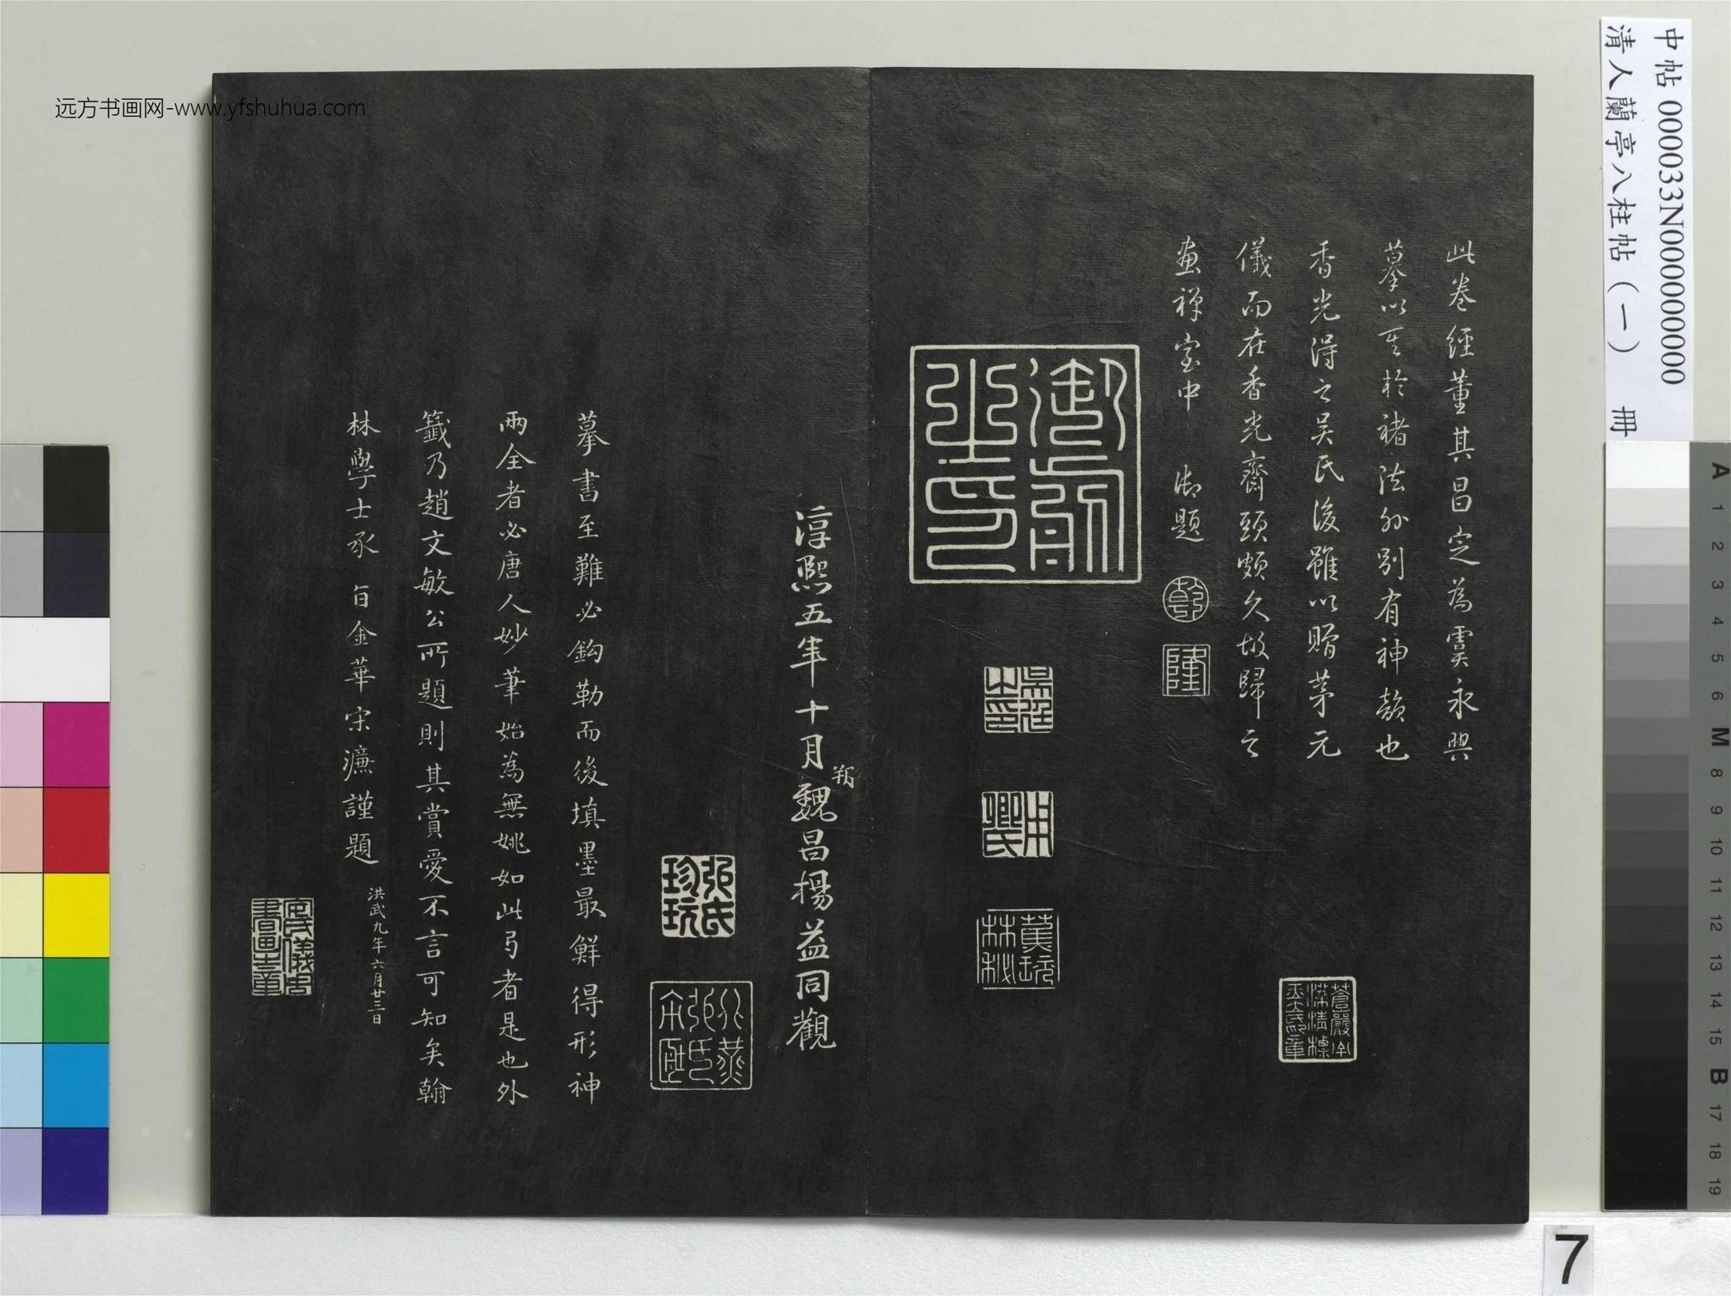 此卷經董其昌定為虞永興
摹以其於褚法外別有神韻也
香光得之吴氏後雖以贈茅元
儀而在香光齋頭頗久故歸之
畫禪室中 御題
乾
隆
淳熙五年十月朔魏昌楊益同觀
張氏
珍玩
摹書至難必鈎勒而後填墨最鮮得形神
兩全者必唐人妙筆始為無媿如此卷者是也外
籤乃趙文敏公所題則其賞愛不言可知矣翰
林學士承旨金華宋濂謹題
洪武九年六月廿三日
中帖 000033N000000000
清人蘭亭八柱帖(一) 冊
远方书画网-www.yfshuhua.com
A 1 2 3 4 5 6 M 8 9 10 11 12 13 14 15 B 17 18 19
7